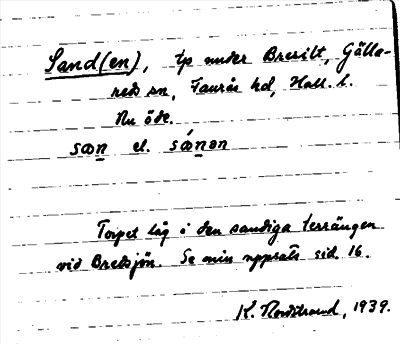 Sand(en), tp under Bresilt, Gälla-
reds sn, Faurås hd, Hall. l.
Nu öde.
san el. sánən
Torpet låg i den sandiga terrängen
vid Bredsjön. Se min uppsats sid. 16.
K. Nordstrand, 1939.